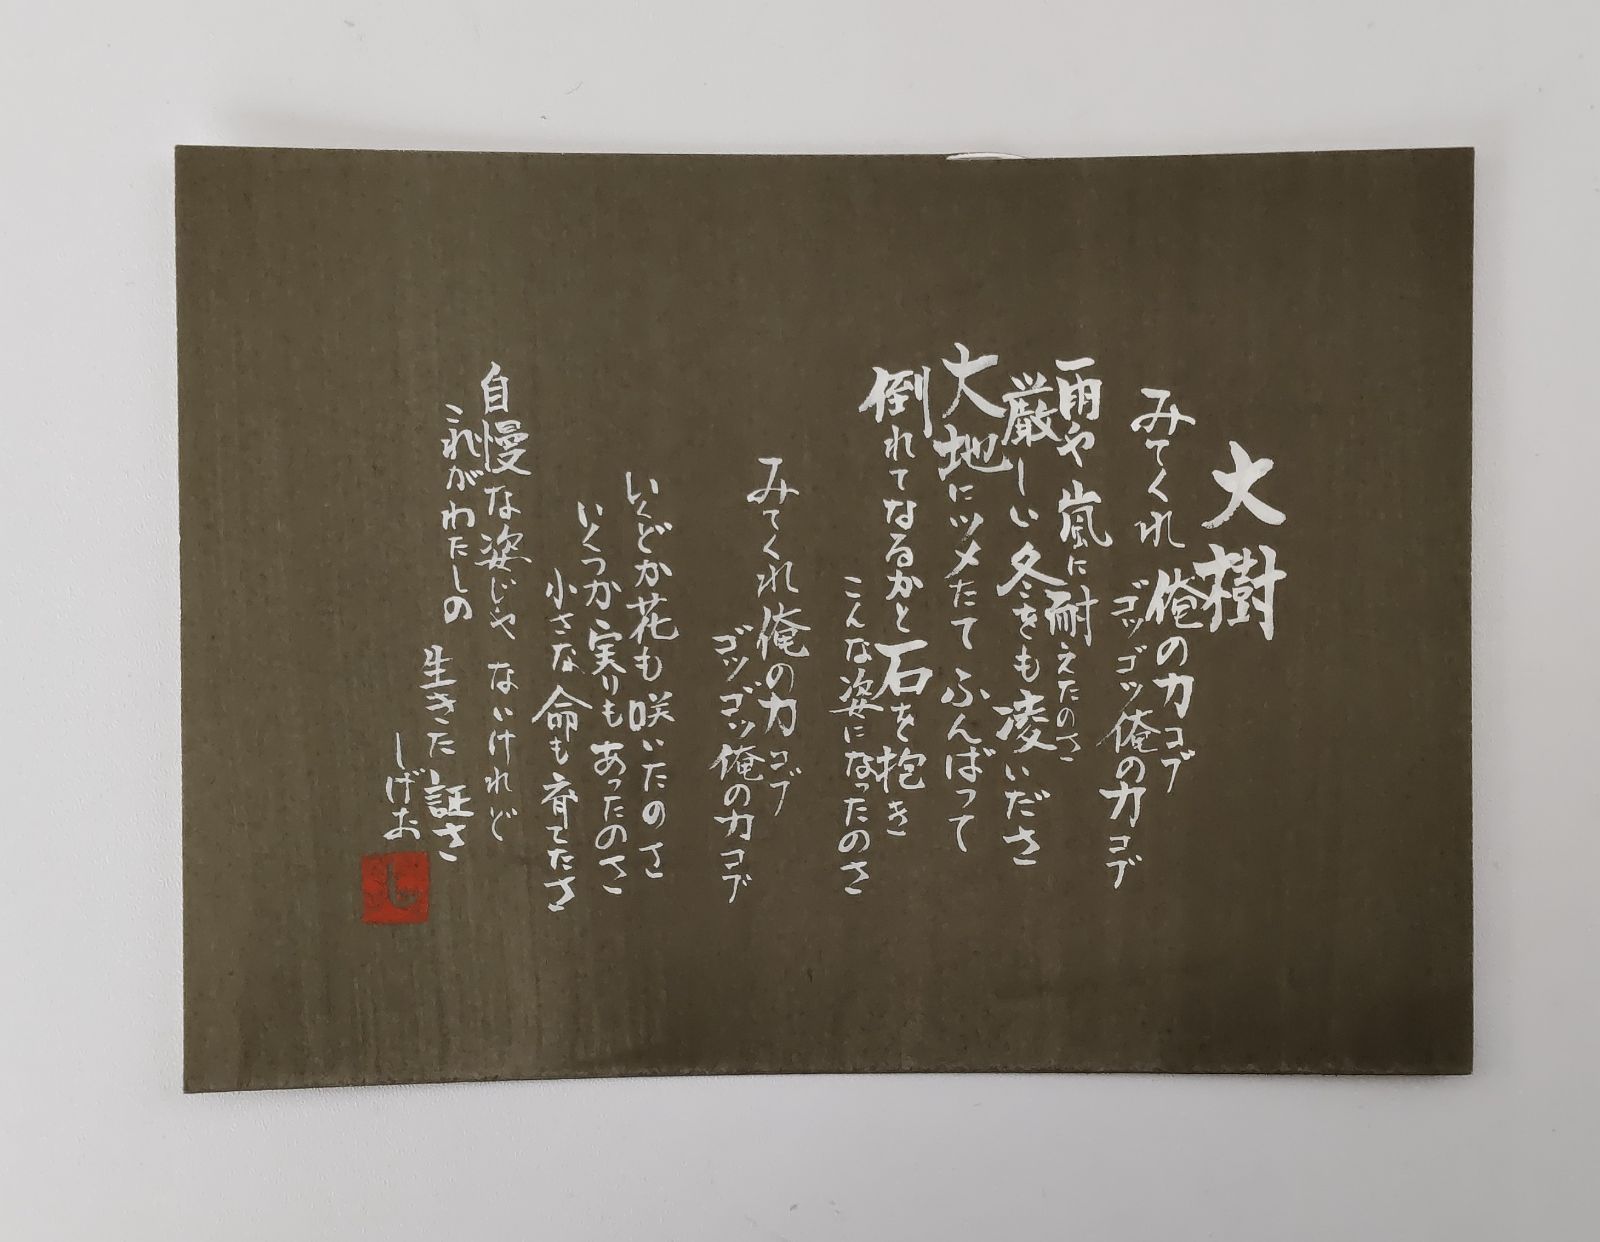 大樹
みてくれ 俺の力コブ
ゴツゴツ俺の力コブ
雨や嵐に耐えたのさ
厳しい冬をも凌いださ
大地にツメたてふんばって
倒れてなるかと石を抱き
こんな姿になったのさ
みてくれ俺の力コブ
ゴツゴツ俺の力コブ
いくどか花も咲いたのさ
いくつか実りもあったのさ
小さな命も育てたさ
自慢な姿じゃないけれど
これがわたしの 生きた証さ
しげお
し